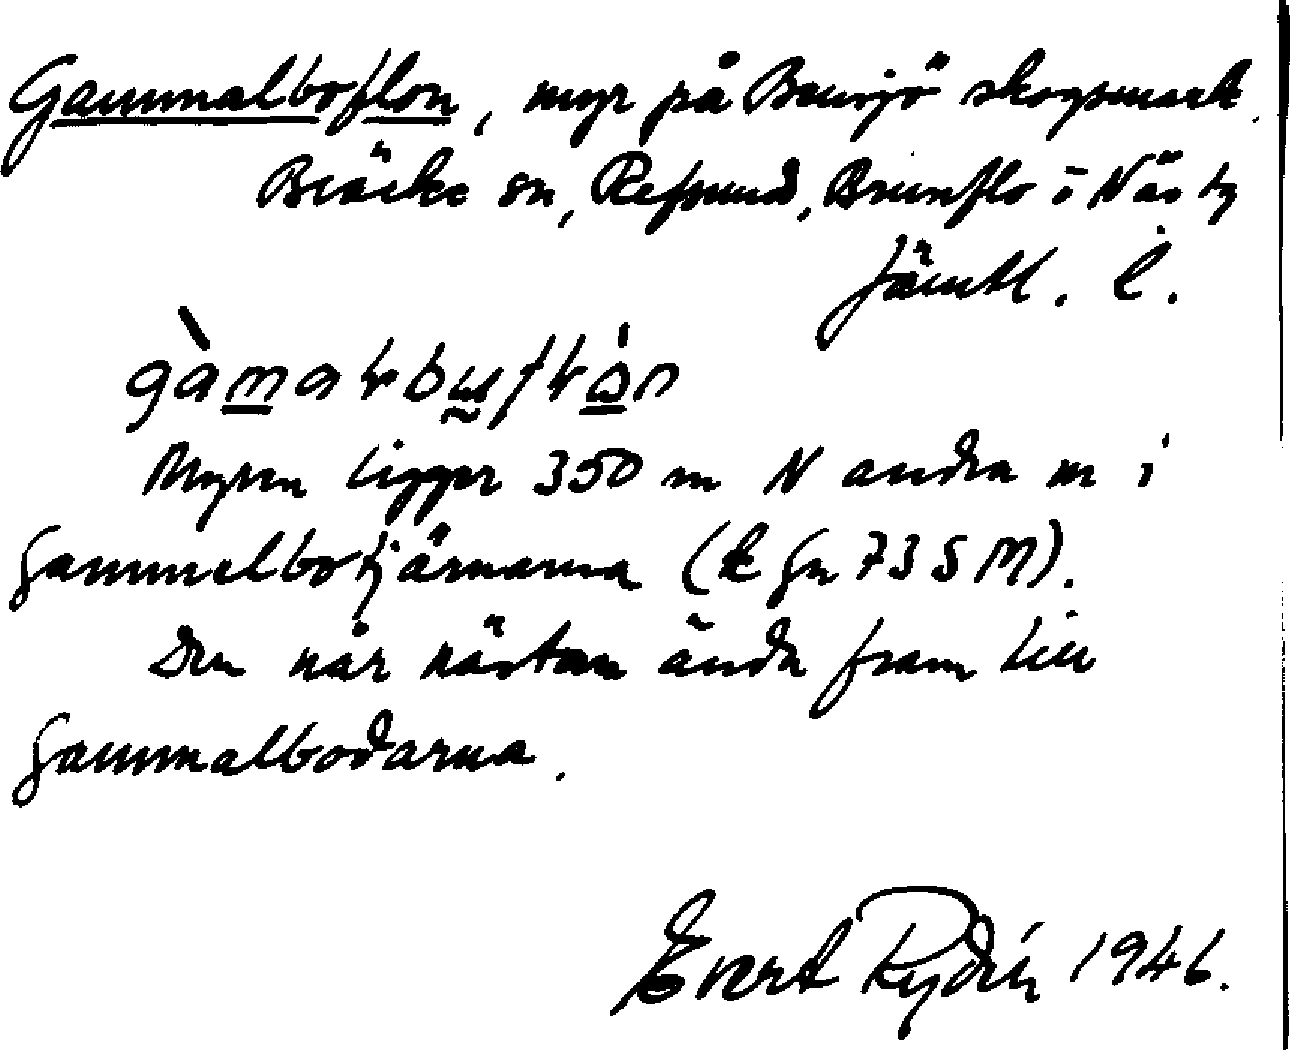 Gammalboflon, myr på Bensjö skogsmark.
Bräcke sn, Refsund, Brunflo o Näs tg
Jämtl. l.
gàmalbuflån
Myren ligger 350 m N andra n i
Gammelbotjärnarna (k Gn 73 S M).
Den når nästan ända fram till
Gammalbodarna.
Evert Rydén 1946.